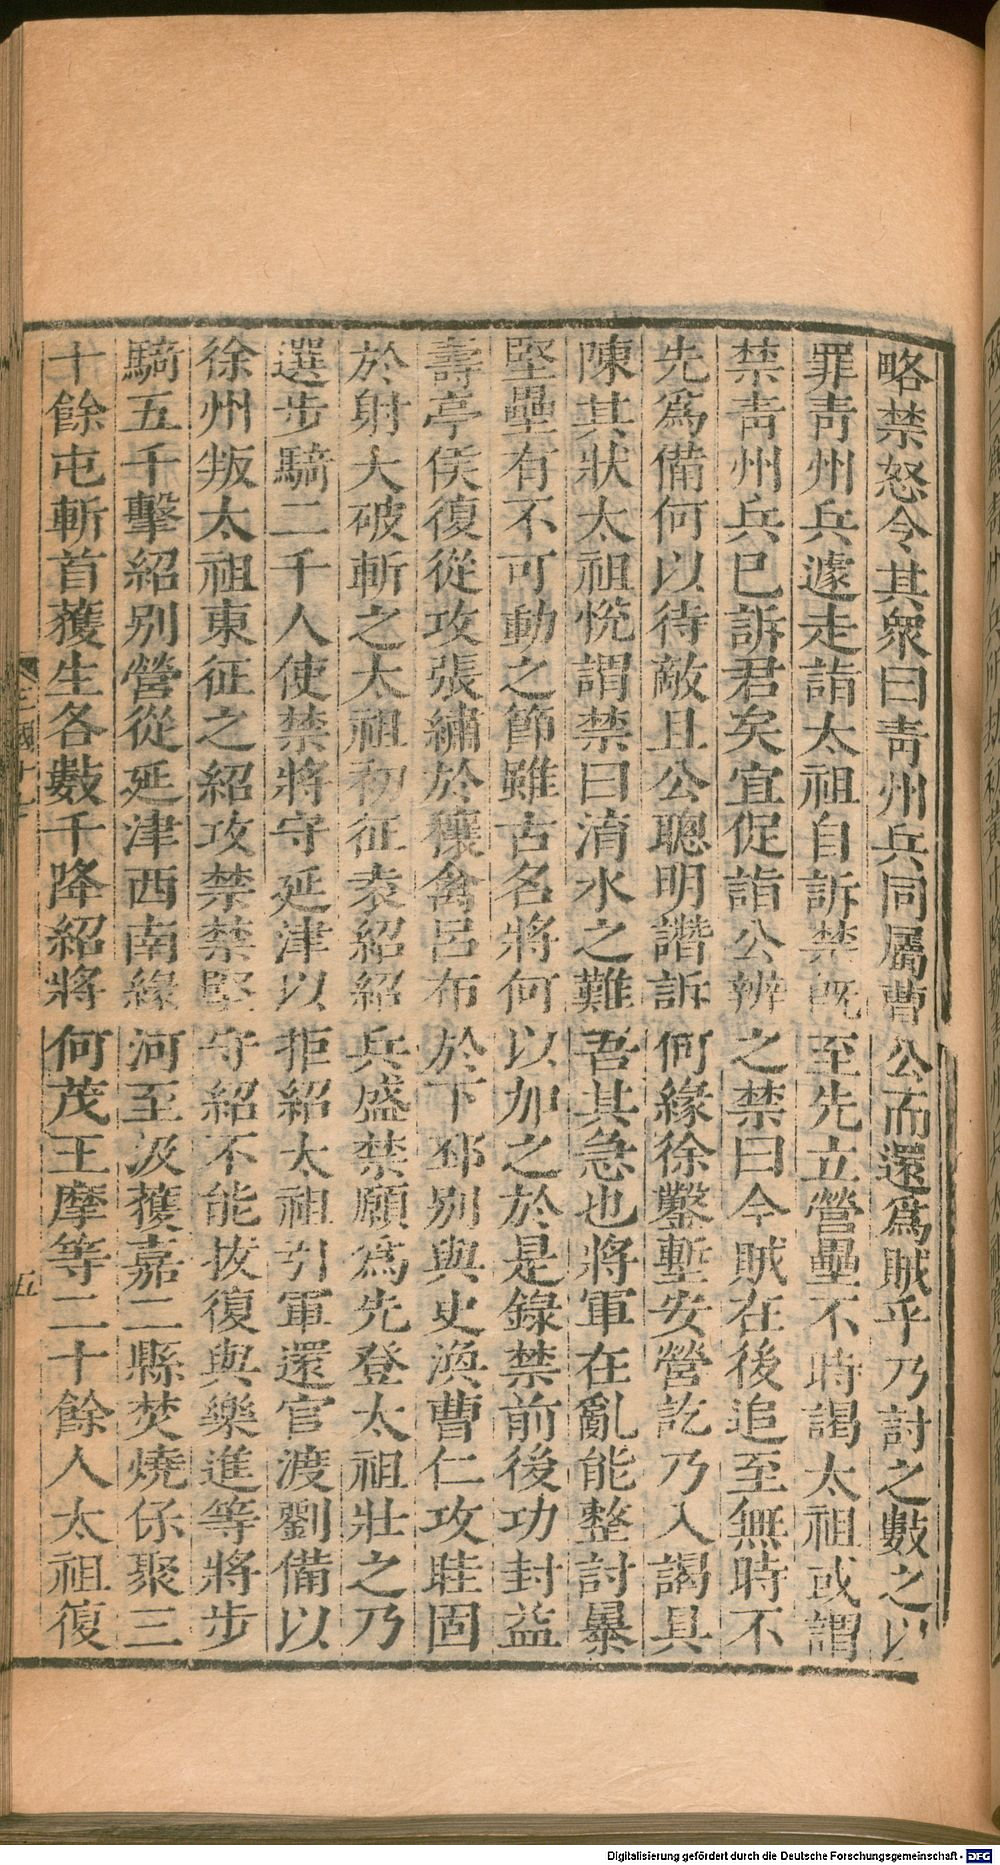 略禁怒令其衆曰青州兵同屬曹公而還爲賊乎乃討之數之以
罪青州兵遽走詣太祖自訴禁旣至先立營壘不時謁太祖或謂
禁青州兵已訴君矣宜促詣公辨之禁曰今賊在後追至無時不
先爲備何以待敵且公聰明譖訴何緣徐鑿塹安營訖乃入謁具
陳其狀太祖悅謂禁曰淯水之難吾其急也將軍在亂能整討暴
堅壘有不可動之節雖古名將何以加之於是錄禁前後功封益
壽亭侯復從攻張繡於穰禽呂布於下邳別與史渙曹仁攻眭固
於射犬破斬之太祖初征袁紹紹兵盛禁願爲先登太祖壯之乃
選步騎二千人使禁將守延津以拒紹太祖引軍還官渡劉備以
徐州叛太祖東征之紹攻禁禁堅守紹不能拔復與樂進等將步
騎五千擊紹別營從延津西南緣河至汲獲嘉二縣焚燒保聚三
十餘屯斬首獲生各數千降紹將何茂王摩等二十餘人太祖復
五
Digitalisierung gefördert durch die Deutsche Forschungsgemeinschaft - DFG